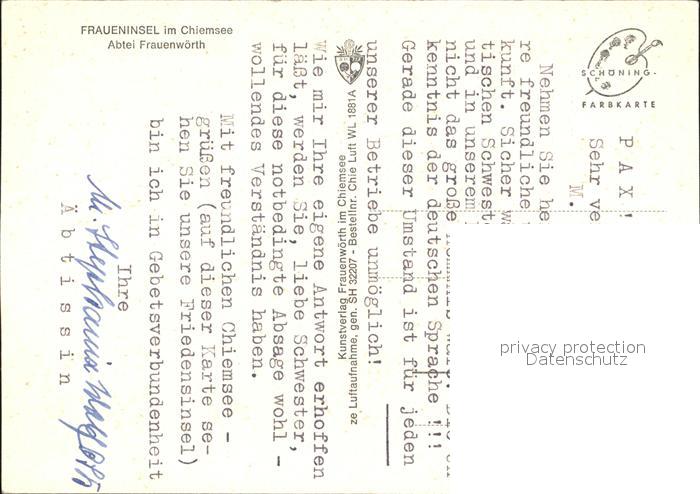 FRAUENINSEL im Chiemsee
Abtei Frauenwörth
SCHÖNING-
FARBKARTE
P A X !
Sehr ve
M.
Nehmen Sie he
re freundliche
kunft. Sicher w
tischen Schwest
und in unserem
nicht das große
kenntnis der deutschen Sprache !!!
Gerade dieser Umstand ist für jeden
unserer Betriebe unmöglich!
Wie mir Ihre eigene Antwort erhoffen
läßt, werden Sie, liebe Schwester,
für diese notbedingte Absage wohl -
wollendes Verständnis haben.
Mit freundlichen Chiemsee -
grüßen (auf dieser Karte se-
hen Sie unsere Friedensinsel)
bin ich in Gebetsverbundenheit
Ihre
M. Stephania
Äbtissin
Kunstverlag Frauenwörth im Chiemsee
ze Luftaufnahme, gen. SH 322/07 - Bestellnr. Chie Luft WL 1881A
privacy protection
Datenschutz